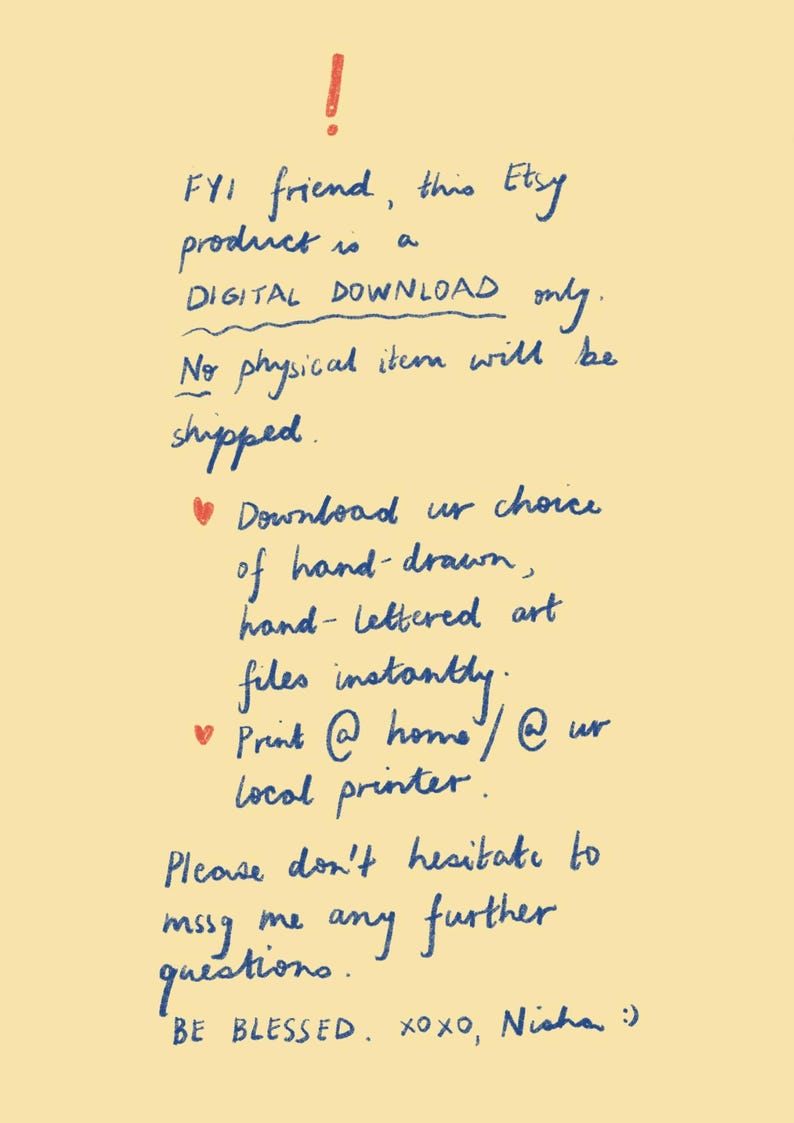 !
FYI friend, this Etsy
product is a
DIGITAL DOWNLOAD only.
No physical item will be
shipped.
♥ Download ur choice
of hand-drawn,
hand-lettered art
files instantly.
♥ Print @ home/@ ur
local printer.
Please don't hesitate to
mssg me any further
questions.
BE BLESSED. xoxo, Nisha :)